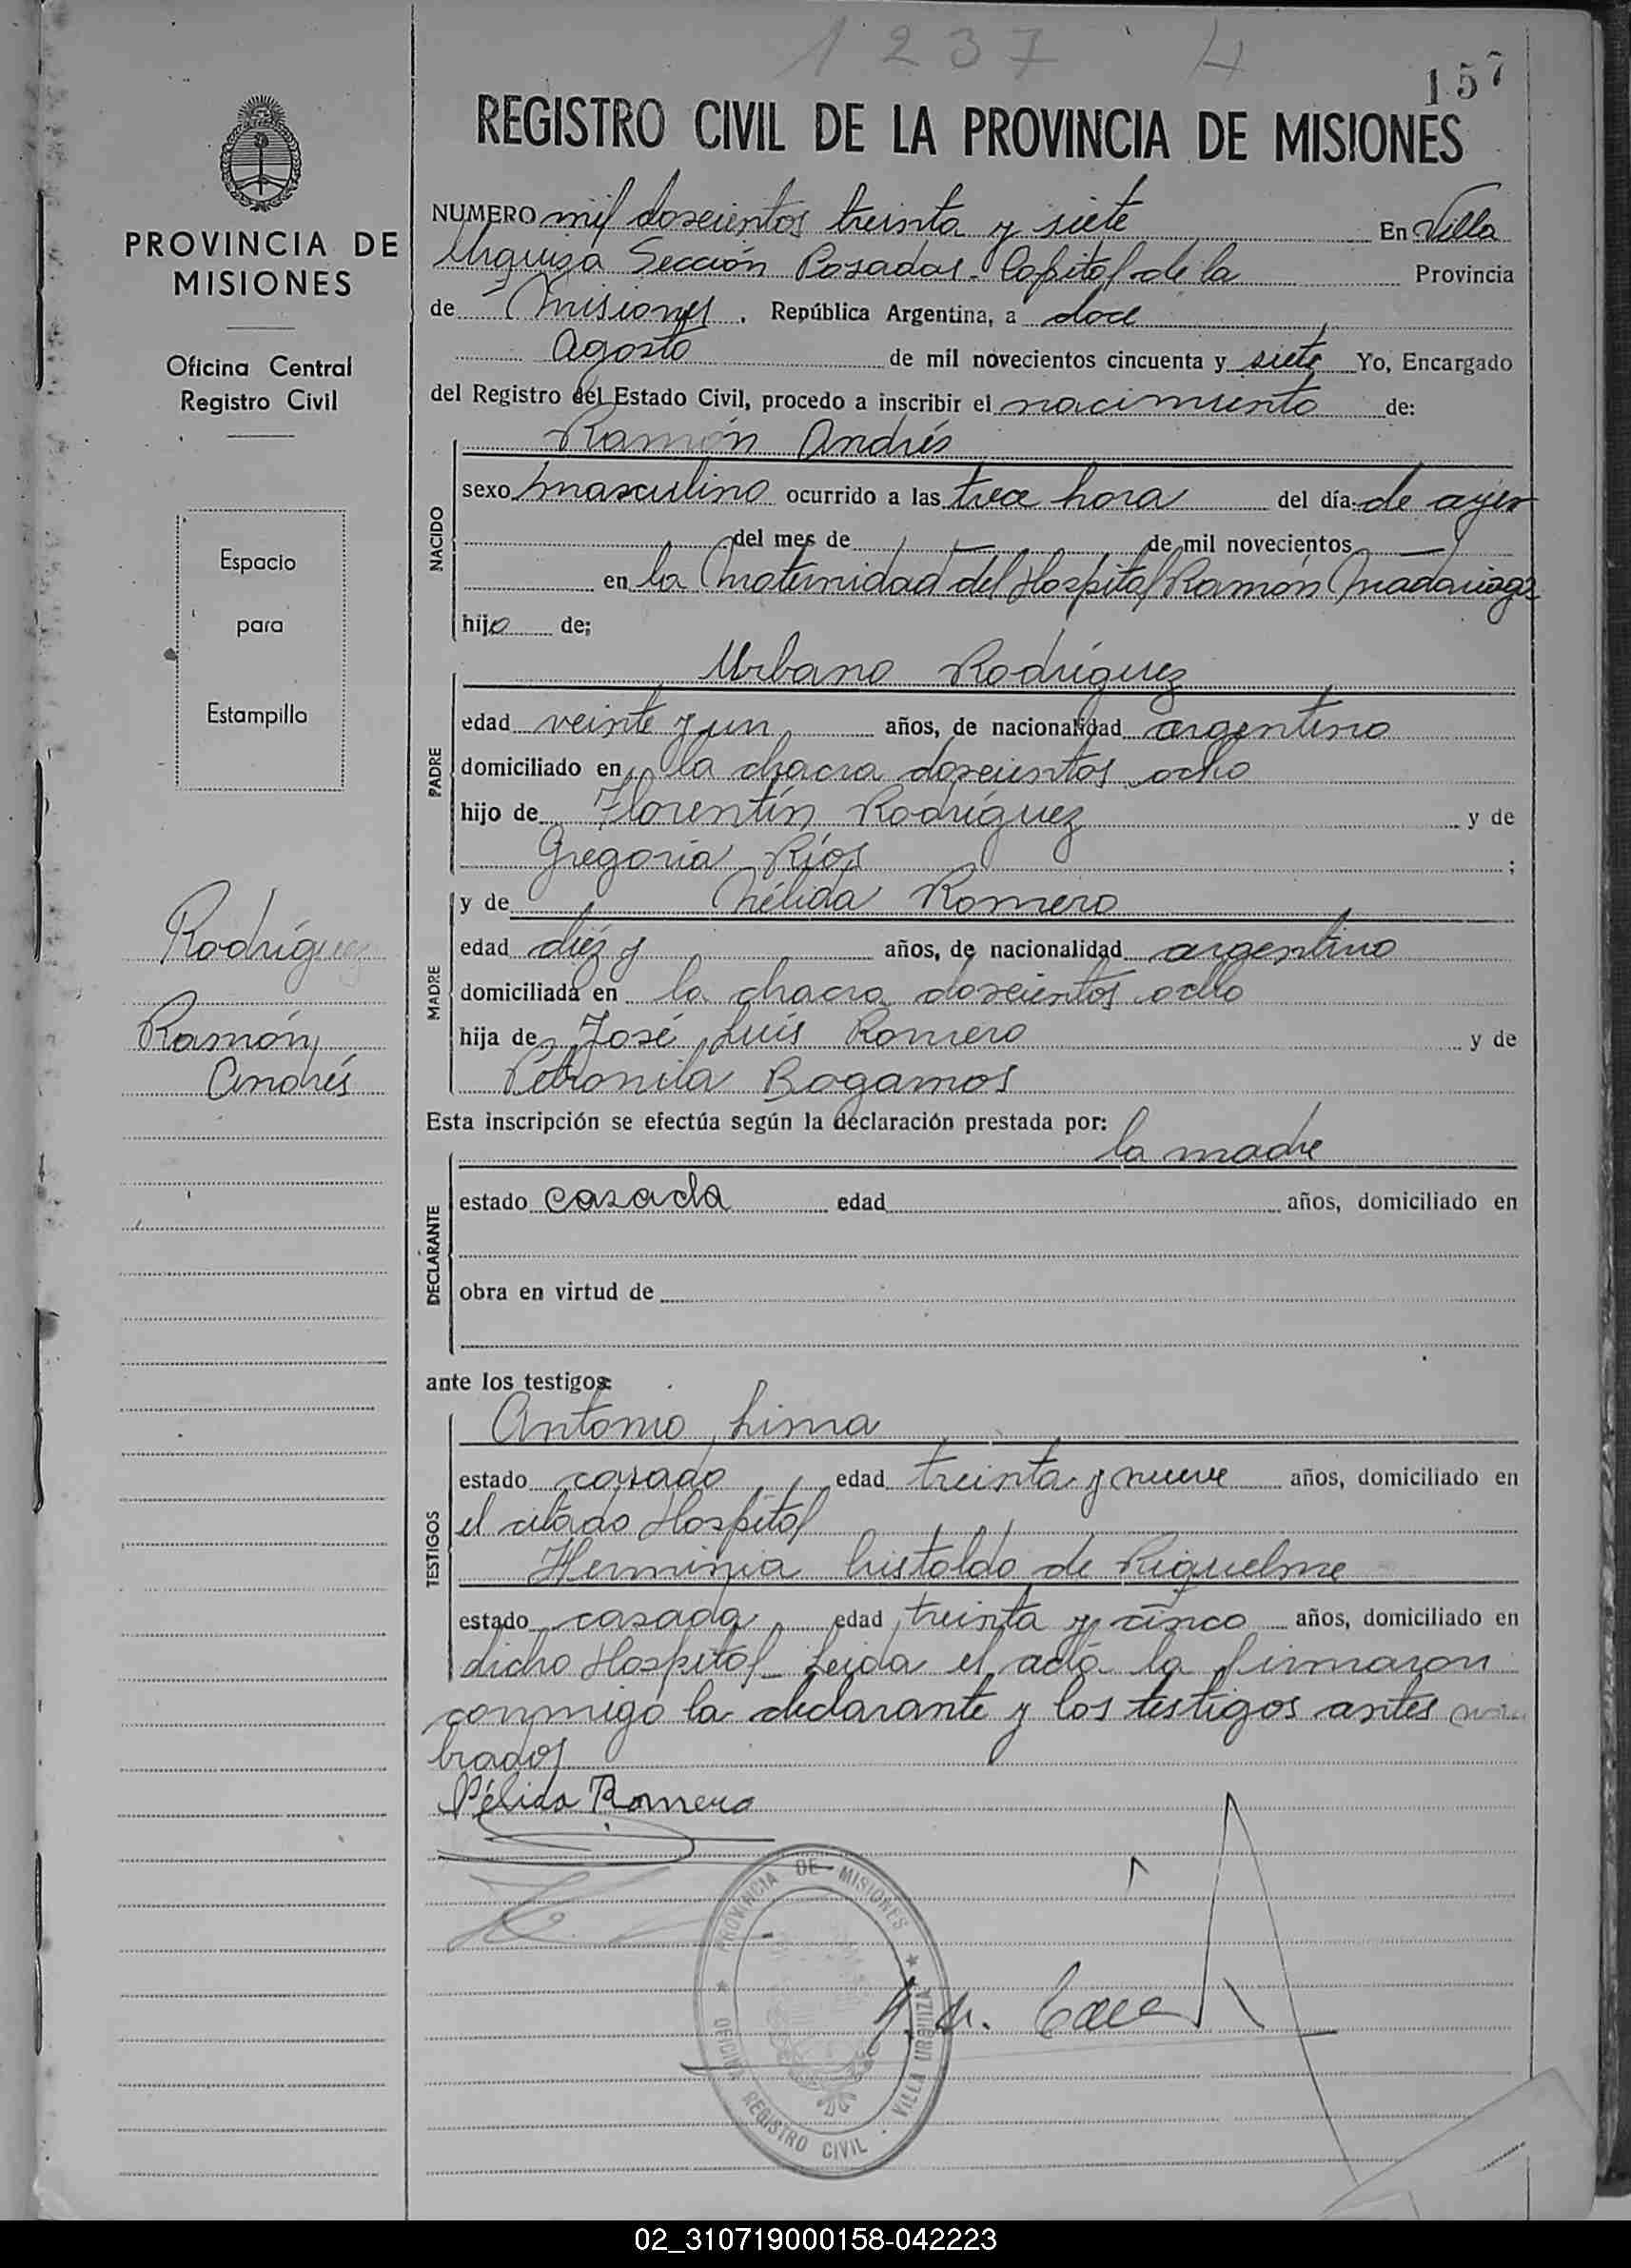 1237 4
157
REGISTRO CIVIL DE LA PROVINCIA DE MISIONES
PROVINCIA DE
MISIONES
Oficina Central
Registro Civil
Espacio
para
Estampilla
Rodríguez
Ramón
Andrés
NUMERO mil doscientos treinta y siete En Villa
Urquiza Sección Posadas - Capital de la Provincia
de Misiones, República Argentina, a doce
Agosto de mil novecientos cincuenta y siete Yo, Encargado
del Registro del Estado Civil, procedo a inscribir el nacimiento de:
NACIDO
Ramón Andrés
sexo masculino ocurrido a las trece hora del día de ayer
del mes de de mil novecientos
en la Maternidad del Hospital Ramón Madariaga
hijo de;
PADRE
Urbano Rodríguez
edad veinte y un años, de nacionalidad argentino
domiciliado en la chacra doscientos ocho
hijo de Florentín Rodríguez y de
Gregoria Ríos ;
MADRE
y de Nélida Romero
edad diéz y años, de nacionalidad argentino
domiciliada en la chacra doscientos ocho
hija de José Luis Romero y de
Petronila Bogamos
Esta inscripción se efectúa según la declaración prestada por:
DECLARANTE
la madre
estado casada edad años, domiciliado en
obra en virtud de
ante los testigos:
TESTIGOS
Antonio Lima
estado casado edad treinta y nueve años, domiciliado en
el citado Hospital
Herminia de Riquelme
estado casada edad treinta y cinco años, domiciliado en
dicho Hospital - Leida el acta la firmaron
conmigo la declarante y los testigos antes
brados
Nélida Romero
PROVINCIA DE MISIONES
OFICINA REGISTRO CIVIL
VILLA URQUIZA
02_310719000158-042223